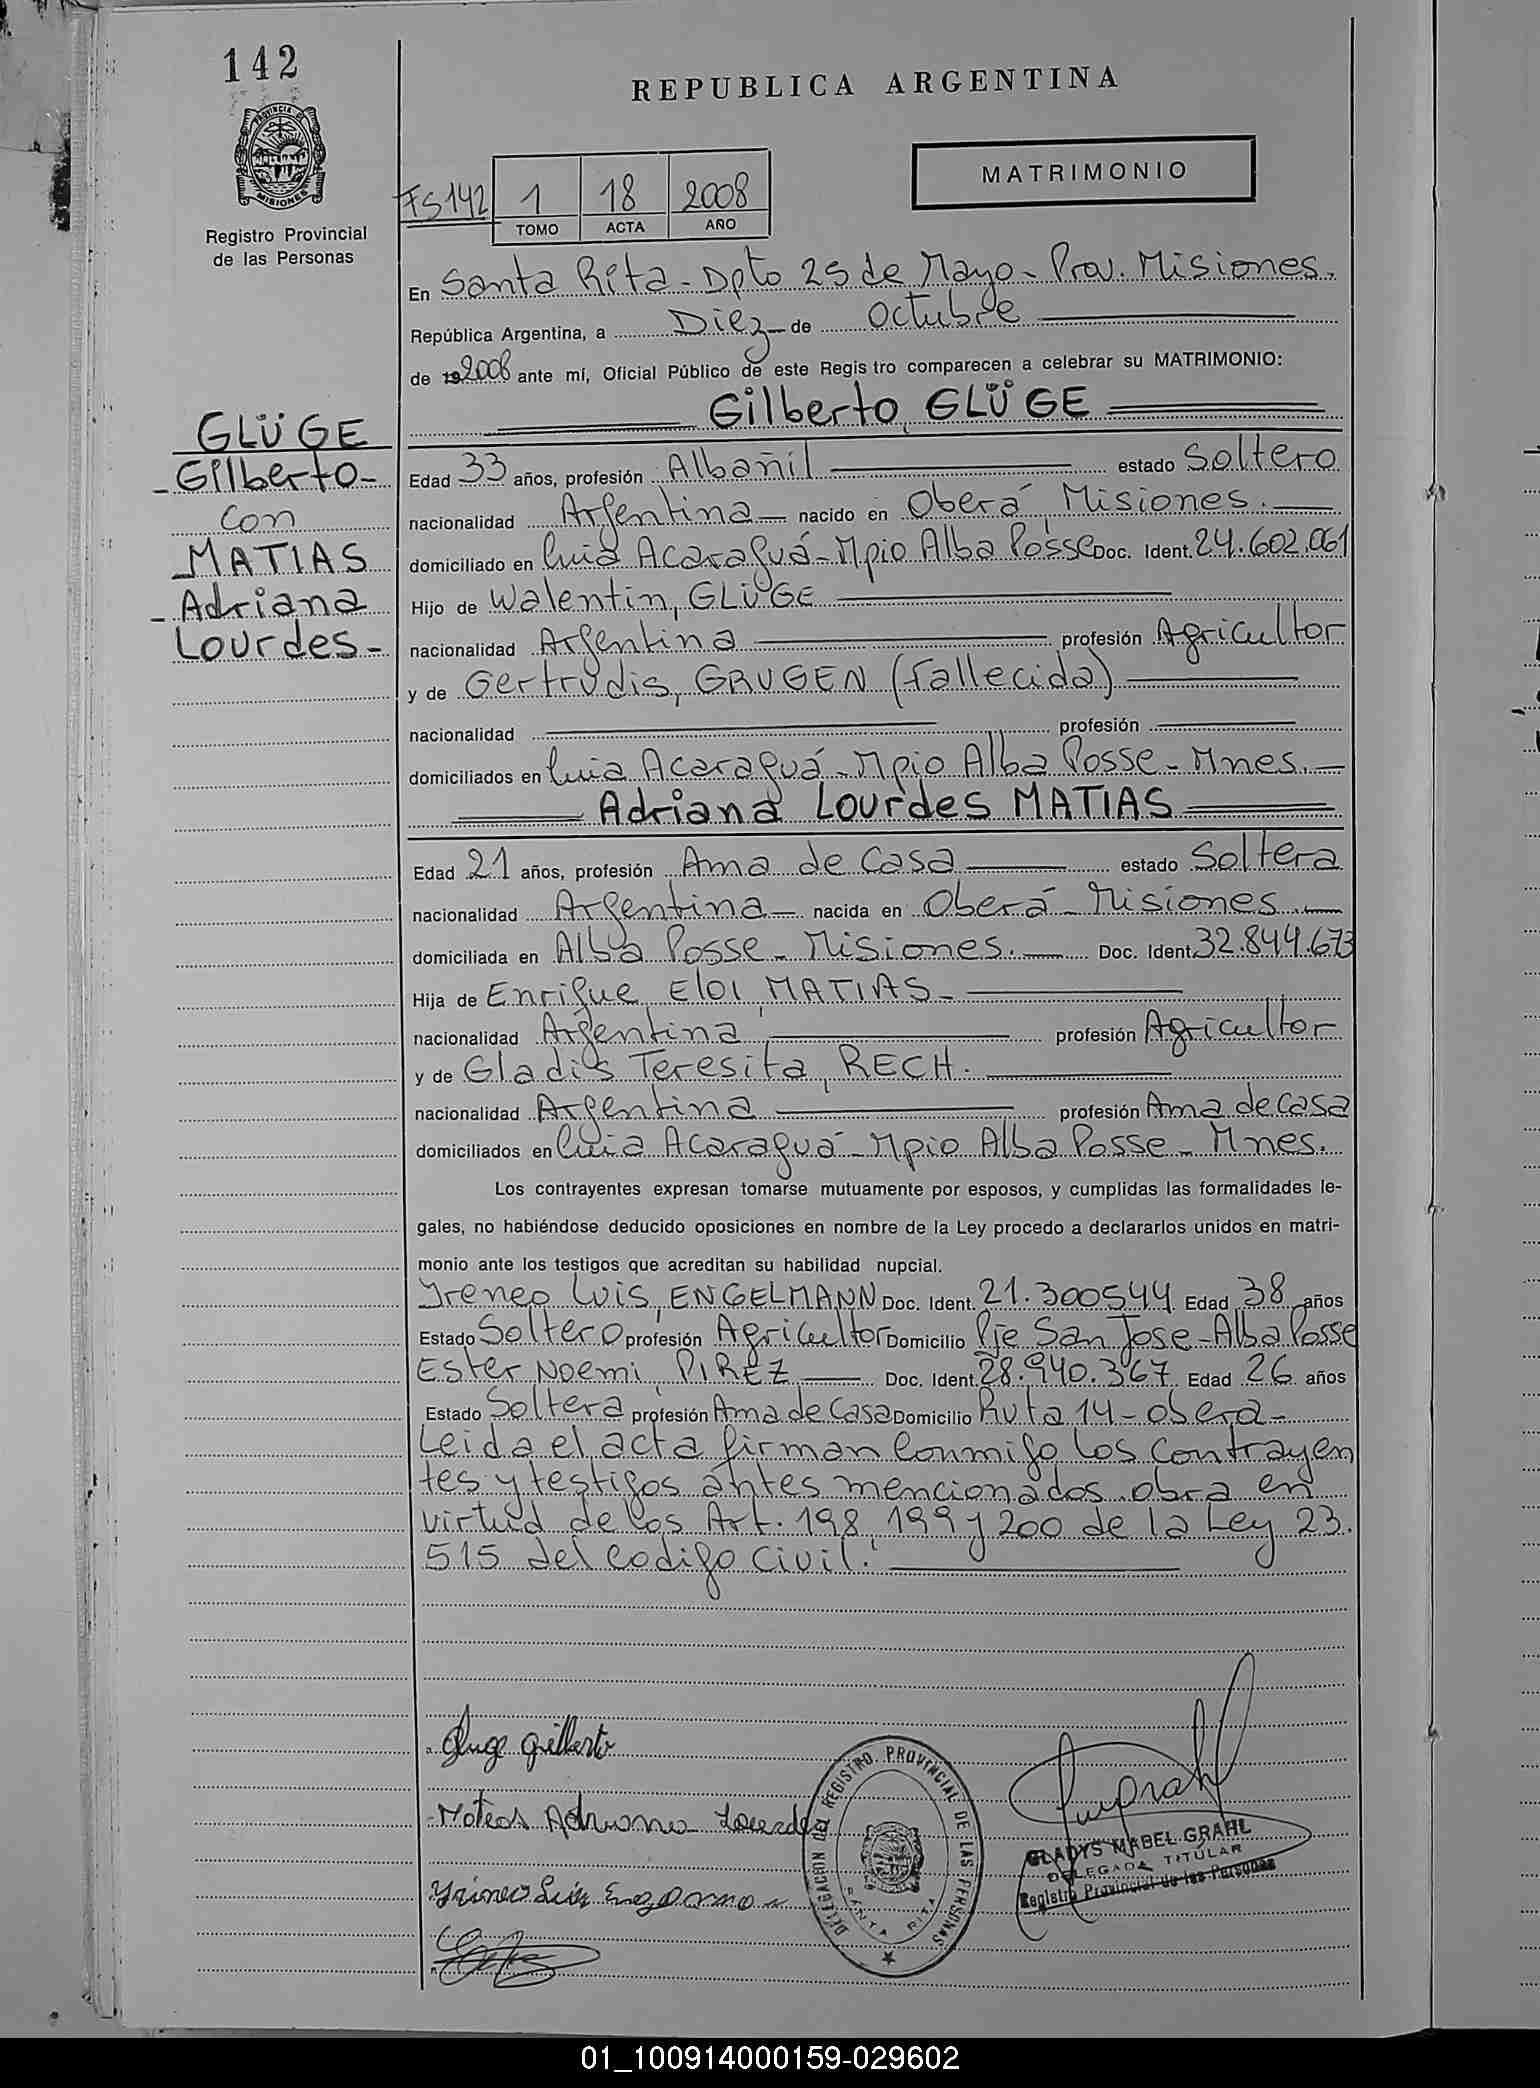 142
REPUBLICA ARGENTINA
PROVINCIA DE MISIONES
Registro Provincial
de las Personas
FS 142 1 18 2008
TOMO ACTA AÑO
MATRIMONIO
En Santa Rita - Dpto 25 de Mayo - Prov. Misiones.
República Argentina, a Diez de Octubre
de 192008 ante mí, Oficial Público de este Regis tro comparecen a celebrar su MATRIMONIO:
Gilberto, GLÜGE
GLÜGE
- Gilberto -
con
MATIAS
- Adriana
Lourdes -
Edad 33 años, profesión Albañil estado Soltero
nacionalidad Argentina nacido en Oberá, Misiones.
domiciliado en Cuia Acaraguá - Mpio Alba Posse Doc. Ident. 24.602.061
Hijo de Walentin, GLÜGE
nacionalidad Argentina profesión Agricultor
y de Gertrudis, GRUGEN (Fallecida)
nacionalidad profesión
domiciliados en Cuia Acaraguá - Mpio Alba Posse - Mnes.
Adriana Lourdes MATIAS
Edad 21 años, profesión Ama de Casa estado Soltera
nacionalidad Argentina nacida en Oberá - Misiones
domiciliada en Alba Posse - Misiones. Doc. Ident. 32.844.673
Hija de Enrique Eloi, MATIAS -
nacionalidad Argentina profesión Agricultor
y de Gladis Teresita, RECH.
nacionalidad Argentina profesión Ama de Casa
domiciliados en Cuia Acaraguá - Mpio Alba Posse - Mnes.
Los contrayentes expresan tomarse mutuamente por esposos, y cumplidas las formalidades le-
gales, no habiéndose deducido oposiciones en nombre de la Ley procedo a declararlos unidos en matri-
monio ante los testigos que acreditan su habilidad nupcial.
Ireneo Luis, ENGELMANN Doc. Ident. 21.300544 Edad 38 años
Estado Soltero profesión Agricultor Domicilio Pje San Jose - Alba Posse
Ester Noemi, PIREZ Doc. Ident. 28.940.367 Edad 26 años
Estado Soltera profesión Ama de Casa Domicilio Ruta 14 - Obera -
Leida el acta firman conmigo los contrayen
tes y testigos antes mencionados obra en
virtud de los Art. 198, 199 y 200 de la Ley 23.
515 del codigo civil.
Gluge Gilberto
Matias Adriana Lourdes
DELEGACION DEL REGISTRO PROVINCIAL DE LAS PERSONAS
SANTA RITA
GLADYS MABEL GRAHL
DELEGADA TITULAR
Registro Provincial de las Personas
01_100914000159-029602